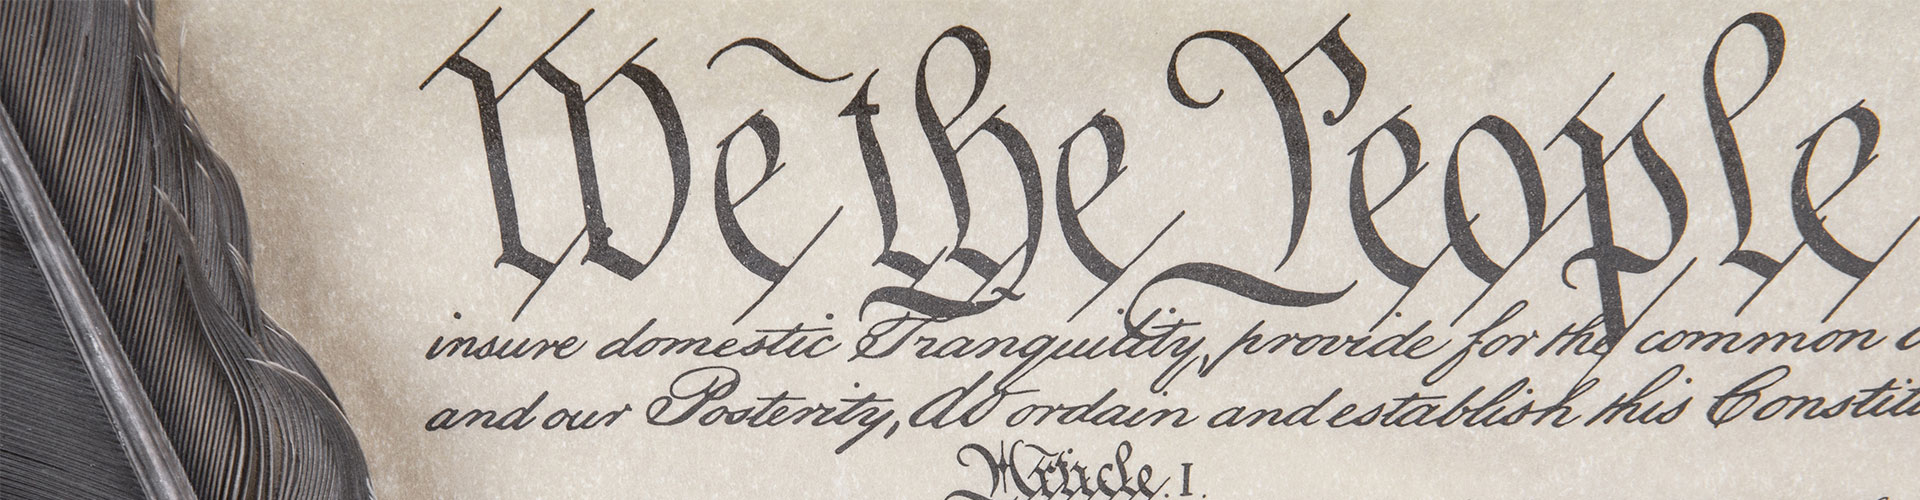 We the People
insure domestic Tranquility, provide for the common
and our Posterity, do ordain and establish this Constitu
Article. I.